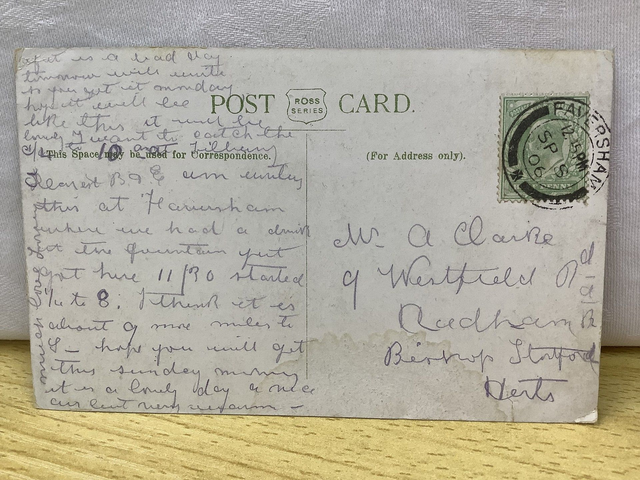 tomorrow will write
so you get it monday
hope it will be
like this it will be
lovely I want to catch the
10 oat Tilbury
POST ROSS SERIES CARD.
This Space may be used for Correspondence.
(For Address only).
FAVERSHAM
12.5 PM
SP 8
06
Dearest B & E am writing
this at Faversham
where we had a drink
at the fountain just
got here 11/30 started
1/4 to 8. I think it is
about 9 more miles to
S - hope you will get
this sunday morning
it is a lovely day a nice
air but very warm -
much love
Mr A Clarke
9 Westfield Rd
Hadham Rd
Bishop Stortford
Herts